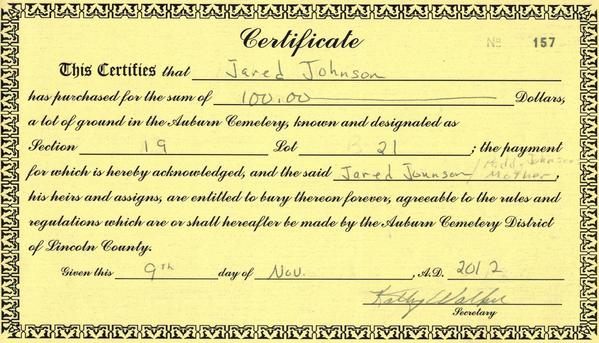 Certificate
No 157
This Certifies that Jared Johnson
has purchased for the sum of 100.00 Dollars,
a lot of ground in the Auburn Cemetery, known and designated as
Section 19 Lot 21 ; the payment
for which is hereby acknowledged, and the said Jared Johnson / Johnson Mother ,
his heirs and assigns, are entitled to bury thereon forever, agreeable to the rules and
regulations which are or shall hereafter be made by the Auburn Cemetery District
of Lincoln County.
Given this 9th day of Nov. , A.D. 2012
Kathy Walker
Secretary